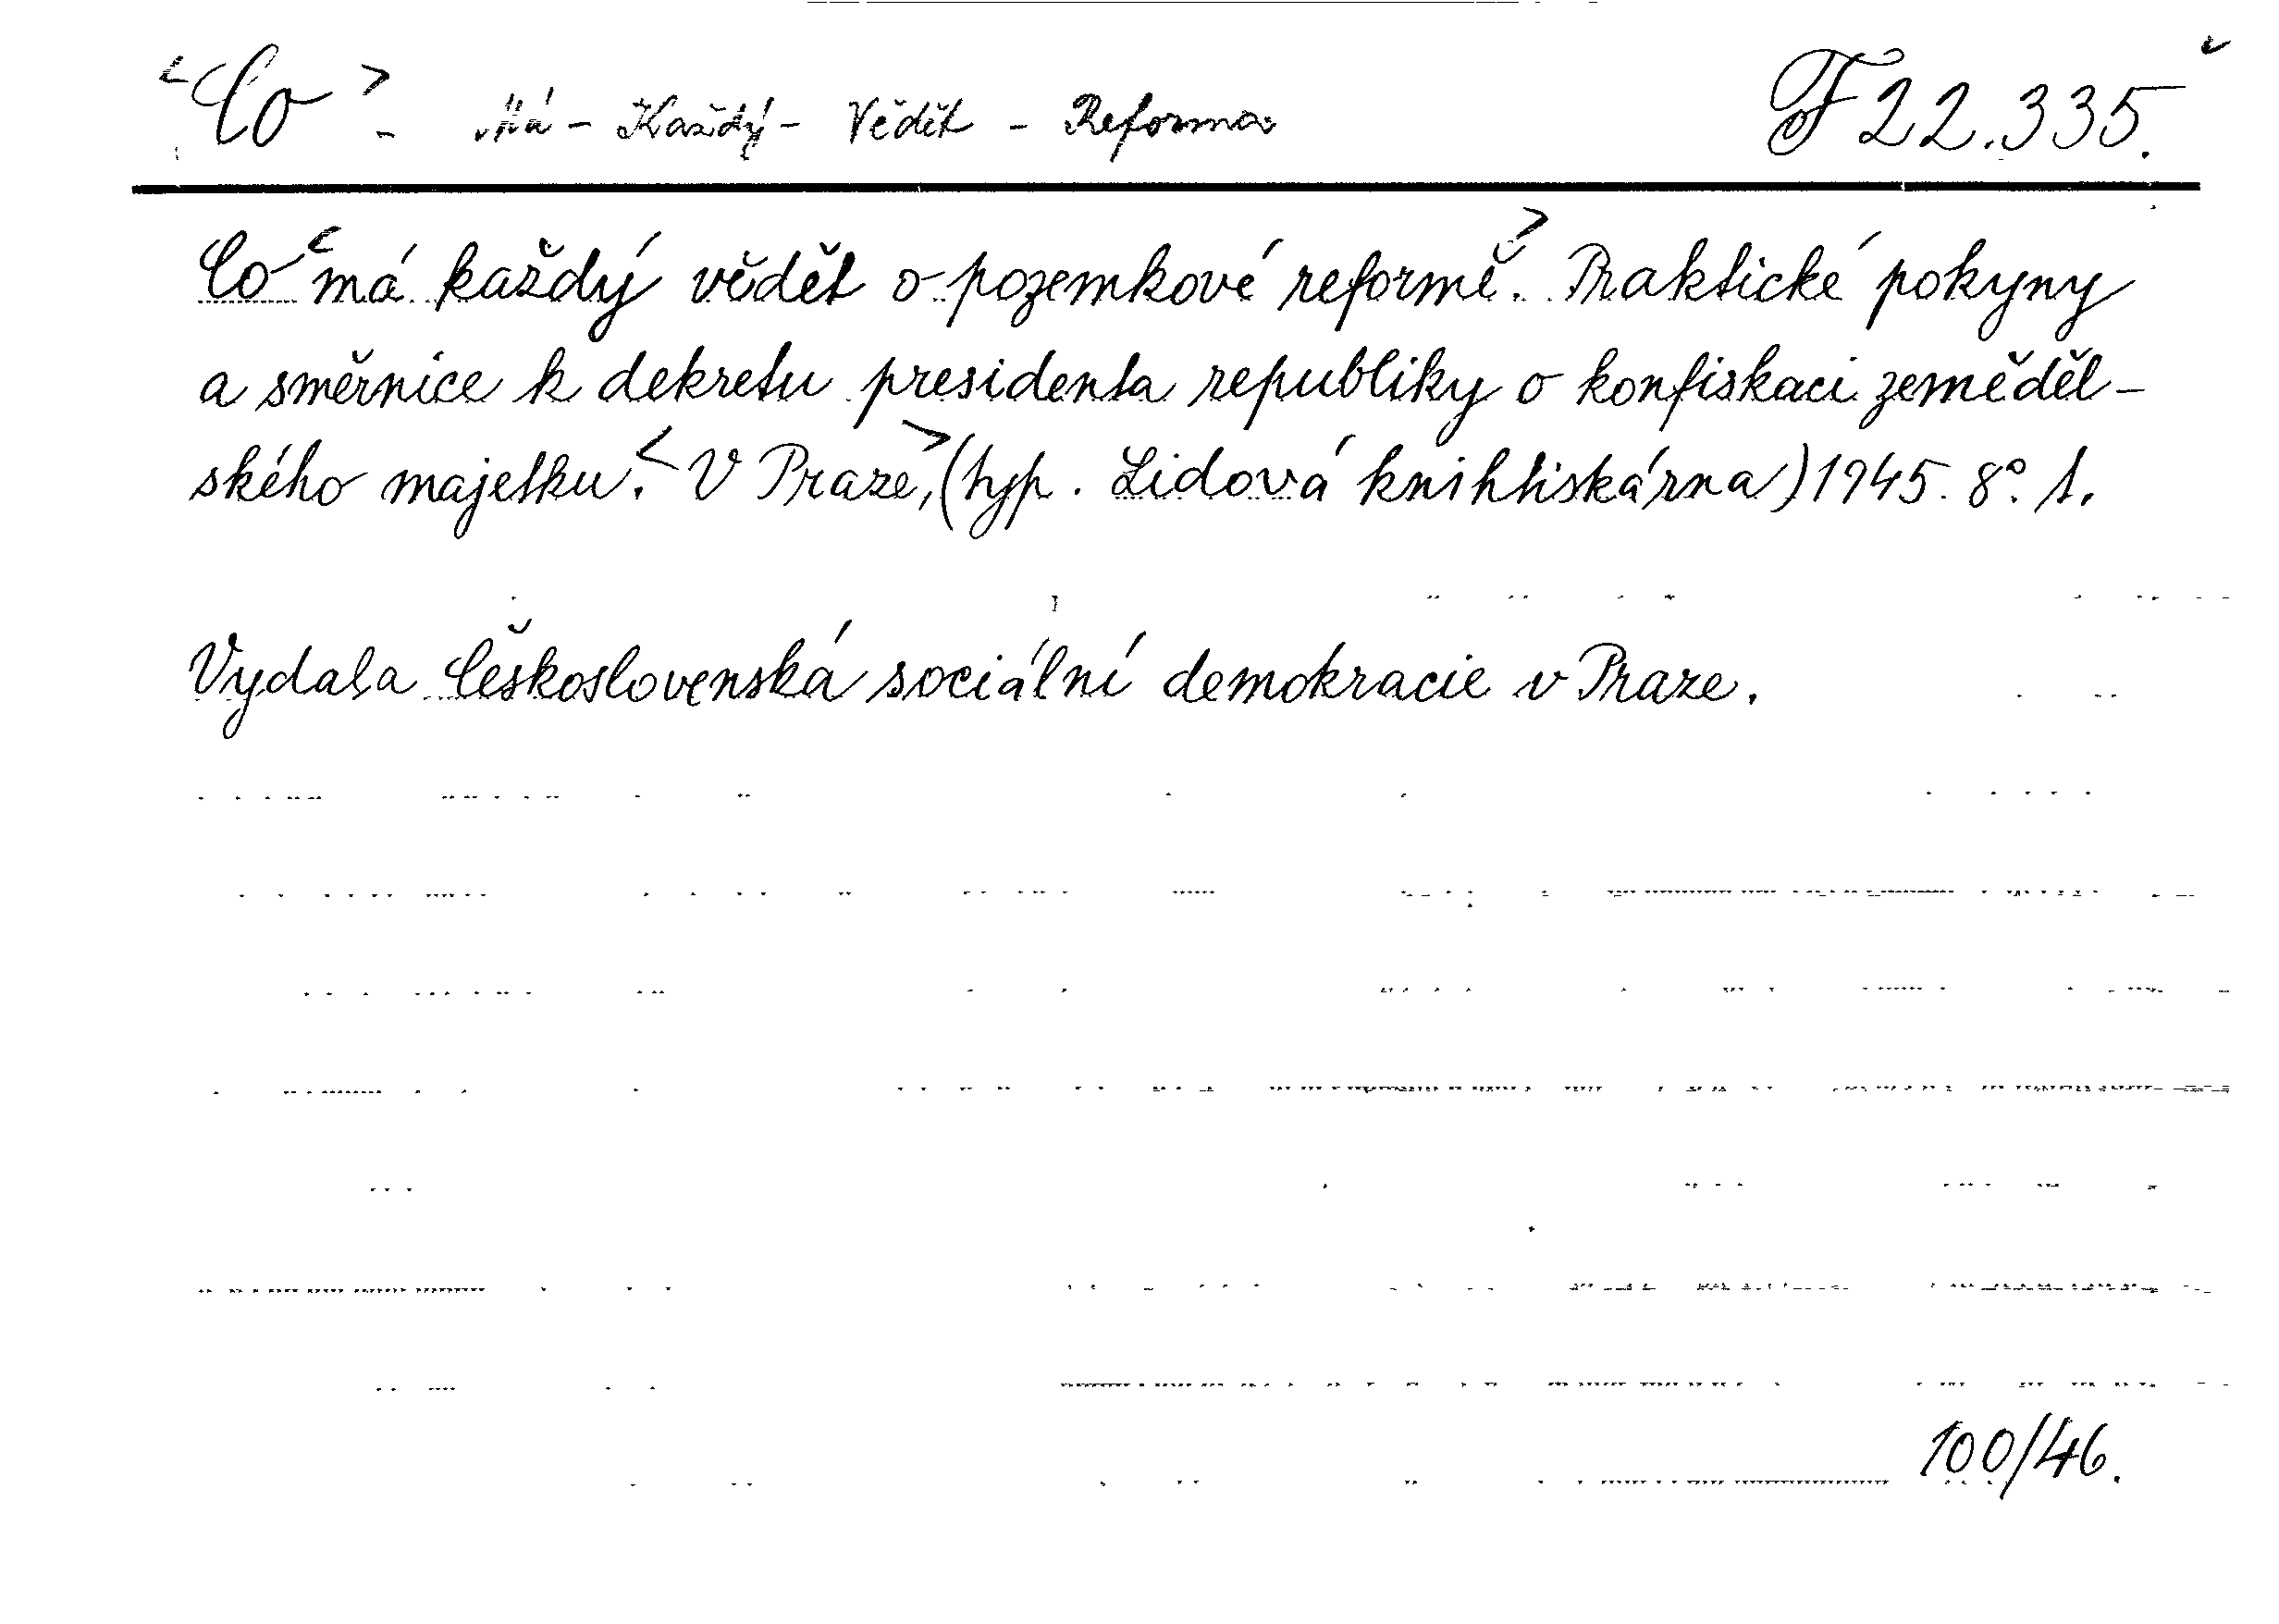 <Co> - Má - Každý - Vědět - Reforma F 22.335.
Co <má každý vědět o pozemkové reformě>. Praktické pokyny
a směrnice k dekretu presidenta republiky o konfiskaci zeměděl-
ského majetku. <V Praze>, (typ. Lidová knihtiskárna) 1945. 8°. 1.
Vydala Československá sociální demokracie v Praze.
100/46.